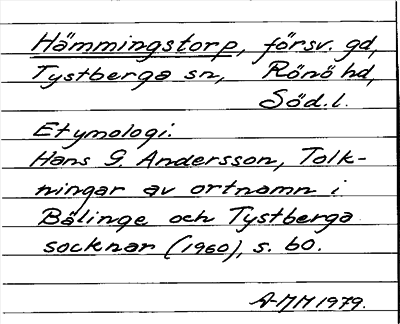 Hämmingstorp, försv. gd,
Tystberga sn, Rönö hd,
Söd.l.
Etymologi:
Hans G. Andersson, Tolk-
ningar av ortnamn i
Bälinge och Tystberga
socknar (1960), s. 60.
A-MM 1979.